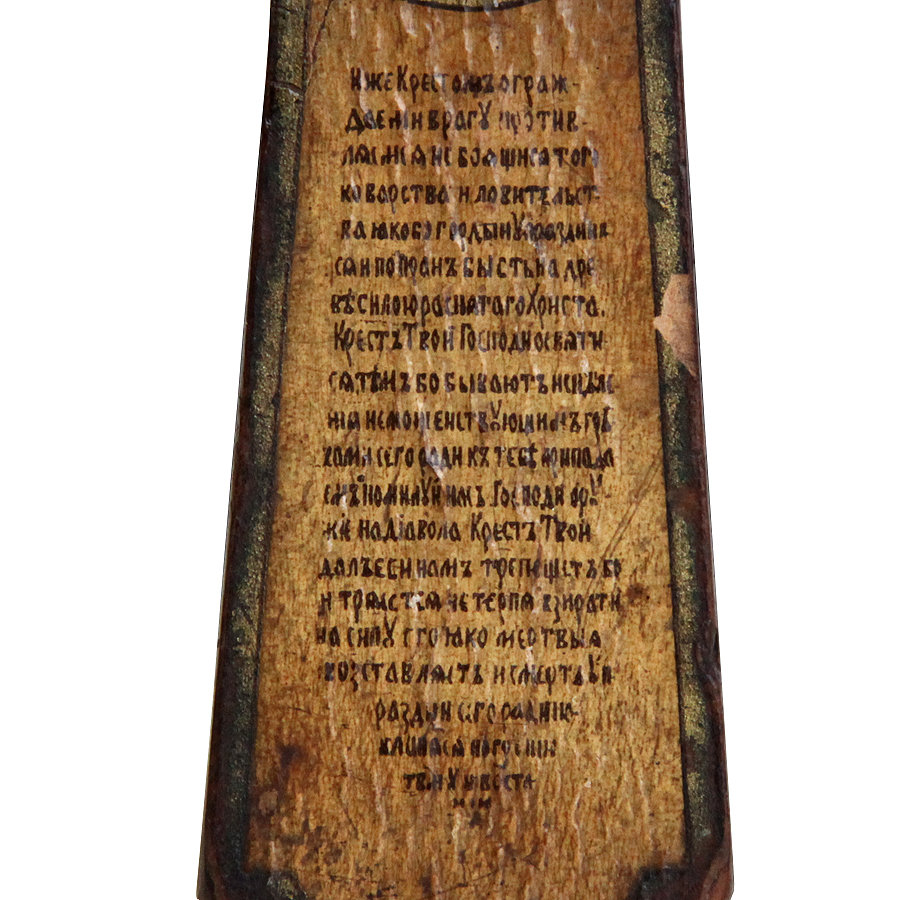 иже Крестомъ ограж-
даеми врагꙋ против-
ляемся не боящися того
коварства и ловительст-
ва яко бо гордый ꙋпраздни
ся и попранъ бысть на дре
вѣ силою распятаго Христа.
Крестъ Твой Господи освяти
ся тѣмъ бо бываютъ исцѣле
нія немощенствꙋющимъ грѣ
хами сего ради къ тебѣ припада
емъ помилꙋй насъ. Господи орꙋ-
жіе на діавола Крестъ Твой
далъ еси намъ трепещетъ бо
и трясется не терпя взирати
на силꙋ его яко мертвыя
возставляетъ и смерть ꙋп
раздни сего ради